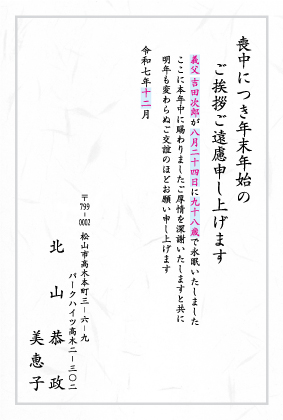 喪中につき年末年始の
ご挨拶ご遠慮申し上げます
義父 吉田次郎が八月二十四日に九十八歳で永眠いたしました
ここに本年中に賜わりましたご厚情を深謝いたしますと共に
明年も変わらぬご交誼のほどお願い申し上げます
令和七年十二月
〒799-0002 松山市高木本町三-六-九
パークハイツ高木二-三〇二
北山 恭政
美恵子